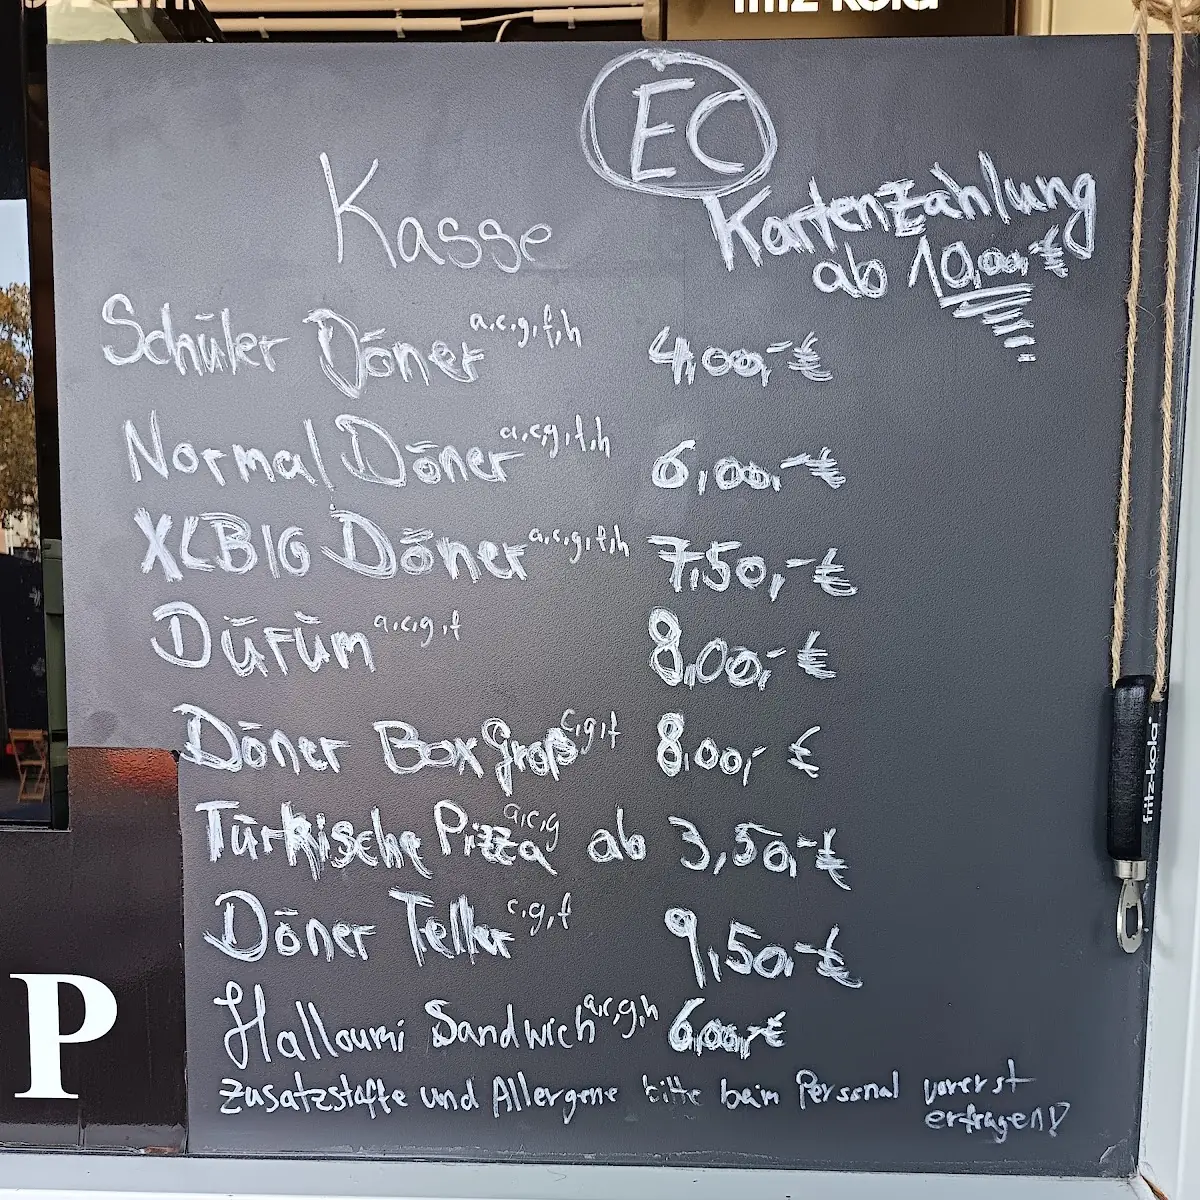 fritz-kola
EC
Kasse
Kartenzahlung
ab 10,00,-€
Schüler Döner a,c,g,f,h 4,00,-€
Normal Döner a,c,g,f,h 6,00,-€
XLBIG Döner a,c,g,f,h 7,50,-€
Dürüm a,c,g,f 8,00,-€
Döner Box groß c,g,f 8,00,- €
Türkische Pizza a,c,g ab 3,50,-€
Döner Teller c,g,f 9,50,-€
Halloumi Sandwich a,c,g,h 6,00,-€
Zusatzstoffe und Allergene bitte beim Personal vorerst
erfragen!
fritz-kola
P